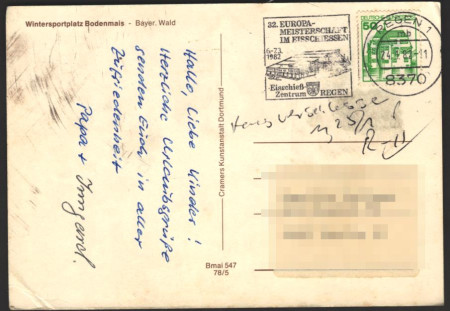 Wintersportplatz Bodenmais - Bayer. Wald
Hallo, Liebe Kinder!
Herzliche Urlaubsgrüße
senden Euch in aller
Zufriedenheit
Papa + Irmgard.
Cramers Kunstanstalt Dortmund
Bmai 547
78/5
32. EUROPA-
MEISTERSCHAFT
IM EISSCHIESSEN
1982
Eisschieß-
Zentrum REGEN
50
REGEN 1
8370